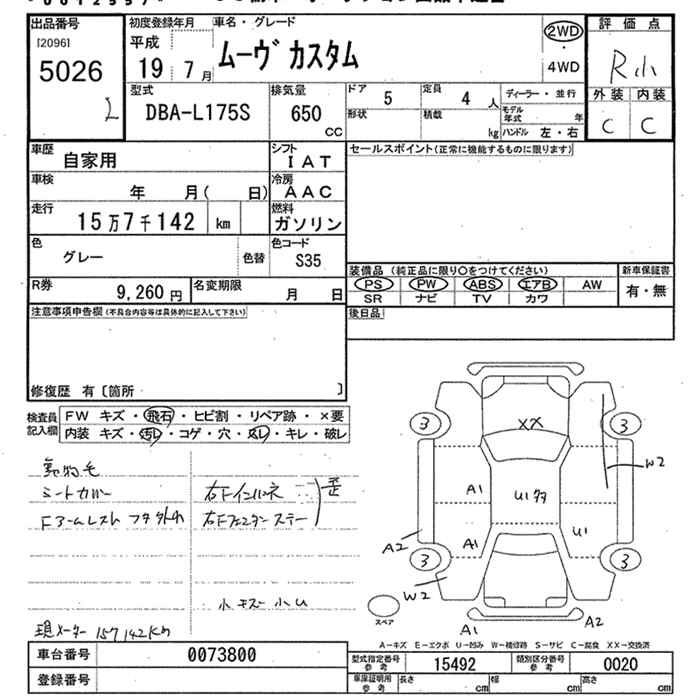 出品番号
[2096]
5026
初度登録年月
平成
19 年 7 月
車名・グレード
ムーヴ カスタム
2WD
・
4WD
評価点
R小
外装 内装
C C
型式
DBA-L175S
排気量
650
CC
ドア
5
定員
4 人
形状
積載
kg
ディーラー・並行
モデル年式 年
ハンドル 左・右
車歴
自家用
シフト
IAT
車検
年 月( 日)
冷房
AAC
走行
15万7千142 km
燃料
ガソリン
色
グレー
色替
色コード
S35
セールスポイント(正常に機能するものに限ります)
装備品(純正品に限り〇をつけてください)
PS PW ABS エアB AW
SR ナビ TV カワ
新車保証書
有・無
R券
9,260 円
名変期限
月 日
後日品
注意事項申告欄(不具合内容等は具体的に記入して下さい)
修復歴 有〔箇所 〕
検査員記入欄
FW キズ・飛石・ヒビ割・リペア跡・×要
内装 キズ・汚レ・コゲ・穴・キレ・破レ
動物毛
シートカバー
Fアームレスト フタ外れ
右Fインパネ
右Fフェンダーステー
歪
小キズ 小U
現メーター 157142Km
3
3
XX
W2
A1
U1 多
A1
U1
A2
3
3
W2
スペア
A1
A2
A-キズ E-エクボ U-凹み W-補修跡 S-サビ C-腐食 XX-交換済
車台番号
0073800
登録番号
型式指定番号参考
15492
類別区分番号参考
0020
車庫証明用参考
長さ cm
幅 cm
高さ cm